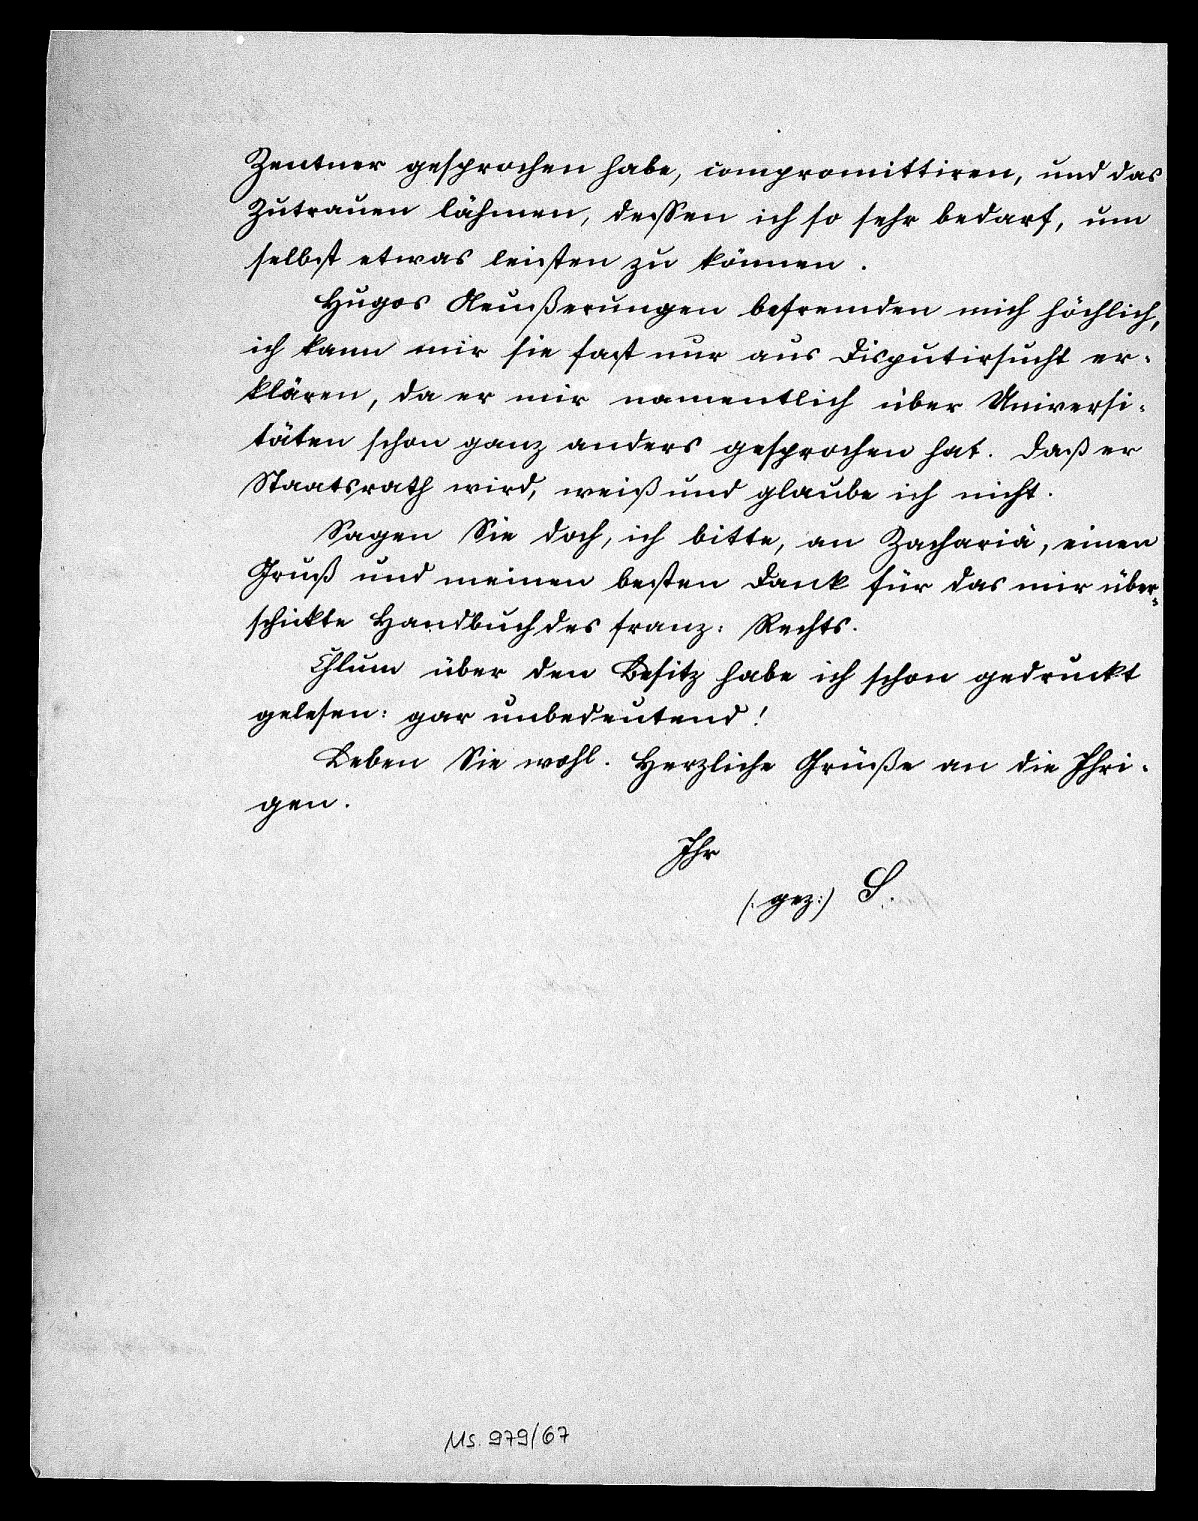 Zentner gesprochen habe, compromittiren, und das
Zutrauen lähmen, dessen ich so sehr bedarf, um
selbst etwas leisten zu können.
Hugos Aeußerungen befremden mich höchlich,
ich kann mir sie fast nur aus Disputirsucht er-
klären, da er mir namentlich über Universi-
täten schon ganz anders gesprochen hat. Daß er
Staatsrath wird, weiß und glaube ich nicht.
Sagen Sie doch, ich bitte, an Zachariä, einen
Gruß und meinen besten Dank für das mir über-
schickte Handbuch des franz: Rechts.
über den Besitz habe ich schon gedruckt
gelesen: gar unbedeutend!
Leben Sie wohl. Herzliche Grüße an die Ihri-
gen.
Ihr
(: gez:) S.
Ms. 979/67